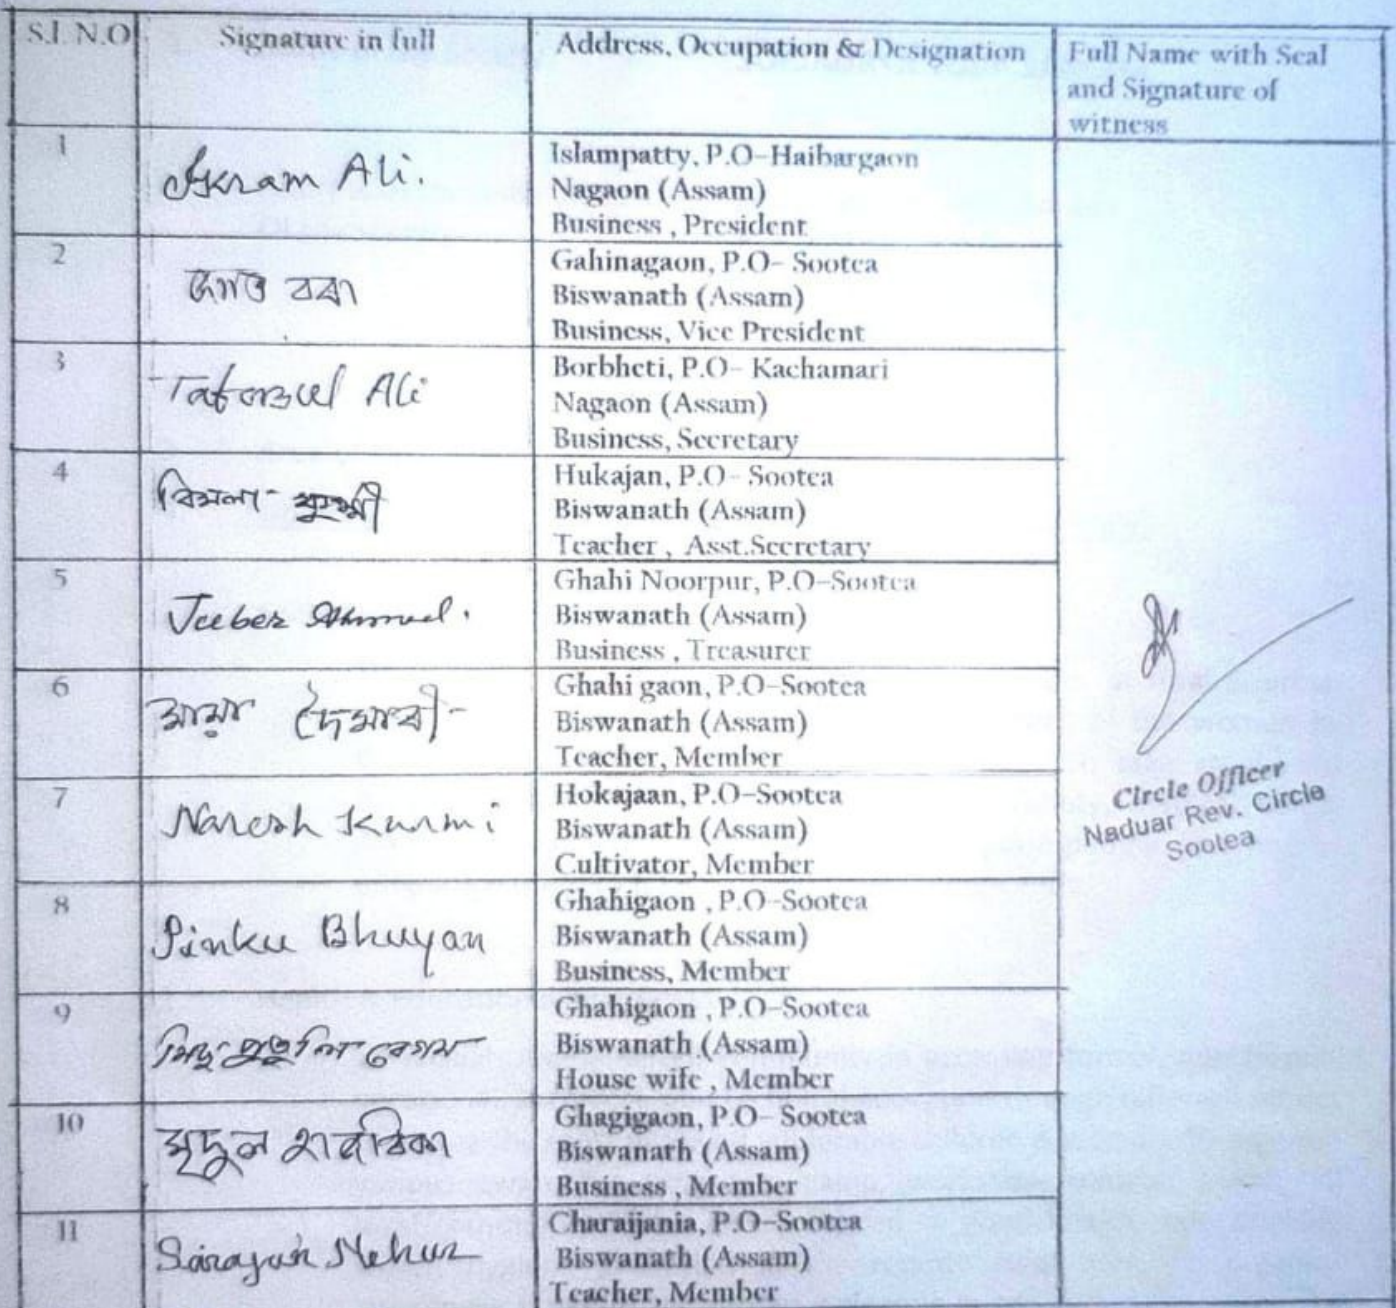 S.I. N.O
Signature in full
Address, Occupation & Designation
Full Name with Seal
and Signature of
witness
1
Akram Ali.
Islampatty, P.O-Haibargaon
Nagaon (Assam)
Business , President
2
বৰা
Gahinagaon, P.O- Sootea
Biswanath (Assam)
Business, Vice President
3
Tafazul Ali
Borbheti, P.O- Kachamari
Nagaon (Assam)
Business, Secretary
4
বিমলা কুৰ্মী
Hukajan, P.O- Sootea
Biswanath (Assam)
Teacher , Asst.Secretary
5
Jueber Ahmed.
Ghahi Noorpur, P.O-Sootea
Biswanath (Assam)
Business , Treasurer
6
মায়া দৈমাৰী
Ghahi gaon, P.O-Sootea
Biswanath (Assam)
Teacher, Member
7
Naresh Kurmi
Hokajaan, P.O-Sootea
Biswanath (Assam)
Cultivator, Member
8
Pinku Bhuyan
Ghahigaon , P.O-Sootea
Biswanath (Assam)
Business, Member
9
বেগম
Ghahigaon , P.O-Sootea
Biswanath (Assam)
House wife , Member
10
মৃদুল হাজৰিকা
Ghagigaon, P.O- Sootea
Biswanath (Assam)
Business , Member
11
Charaijania, P.O-Sootea
Biswanath (Assam)
Teacher, Member
Circle Officer
Naduar Rev. Circle
Sootea